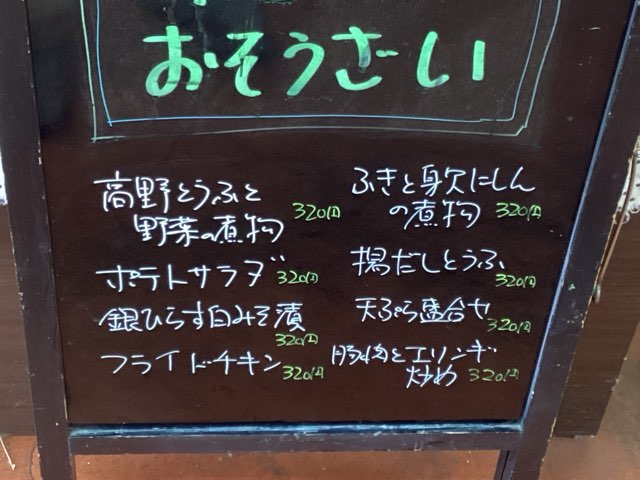 おそうざい
高野とうふと
野菜の煮物 320円
ポテトサラダ 320円
銀ひらす白みそ漬
320円
フライドチキン 320円
ふきと身欠にしん
の煮物 320円
揚だしとうふ
320円
天ぷら盛合せ
320円
豚肉とエリンギ
炒め 320円